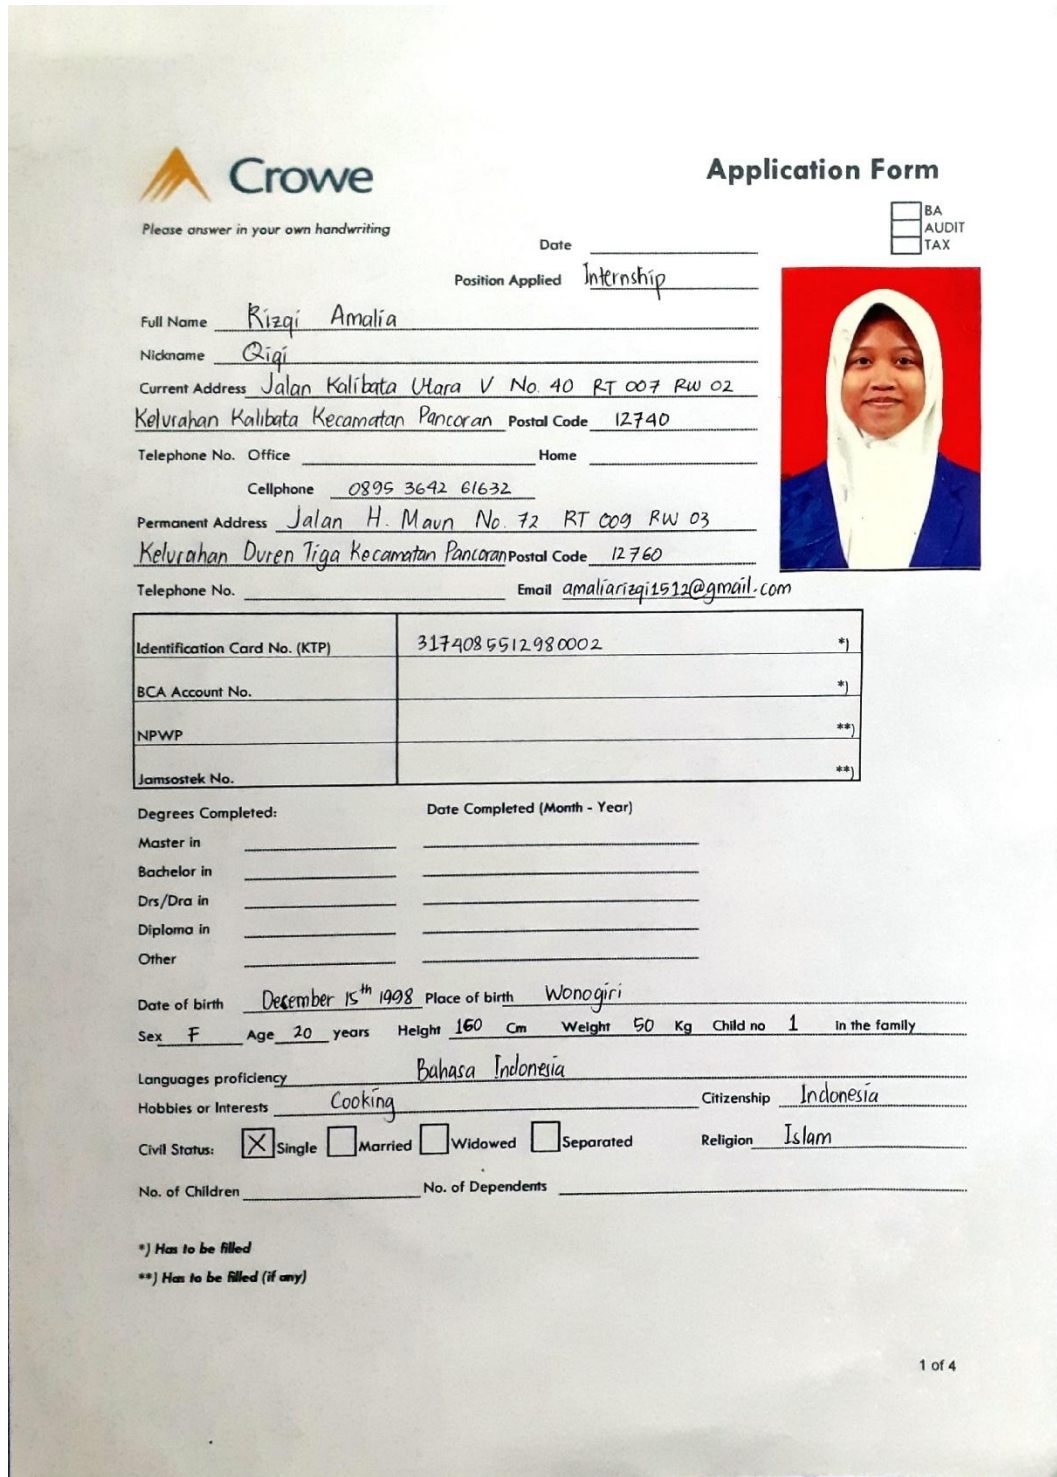 Crowe
Application Form
Please answer in your own handwriting
BA
AUDIT
TAX
Date
Position Applied Internship
Full Name Rizqi Amalia
Nickname Qiqi
Current Address Jalan Kalibata Utara V No. 40 RT 007 RW 02
Kelurahan Kalibata Kecamatan Pancoran Postal Code 12740
Telephone No. Office Home
Cellphone 0895 3642 61632
Permanent Address Jalan H. Maun No. 72 RT 009 RW 03
Kelurahan Duren Tiga Kecamatan Pancoran Postal Code 12760
Telephone No. Email amaliarizqi1512@gmail.com
Identification Card No. (KTP) 3174085512980002 *)
BCA Account No. *)
NPWP **)
Jamsostek No. **)
Degrees Completed: Date Completed (Month - Year)
Master in
Bachelor in
Drs/Dra in
Diploma in
Other
Date of birth December 15th 1998 Place of birth Wonogiri
Sex F Age 20 years Height 160 Cm Weight 50 Kg Child no 1 In the family
Languages proficiency Bahasa Indonesia
Hobbies or Interests Cooking Citizenship Indonesia
Civil Status: X Single Married Widowed Separated Religion Islam
No. of Children No. of Dependents
*) Has to be filled
**) Has to be filled (if any)
1 of 4